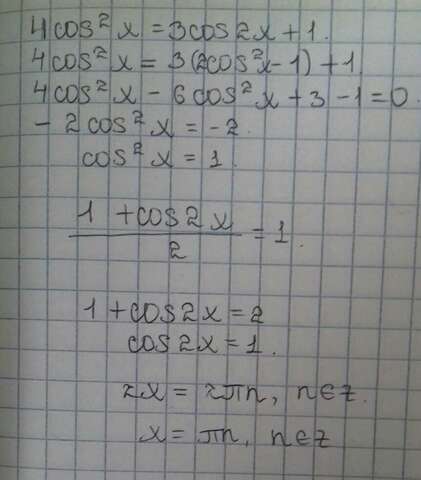 4cos²x = 3cos2x + 1.
4cos²x = 3(2cos²x - 1) + 1
4cos²x - 6cos²x + 3 - 1 = 0
- 2cos²x = -2.
cos²x = 1.
(1 + cos2x)/2 = 1.
1 + cos2x = 2
cos2x = 1.
2x = 2πn, n∈z.
x = πn, n∈z